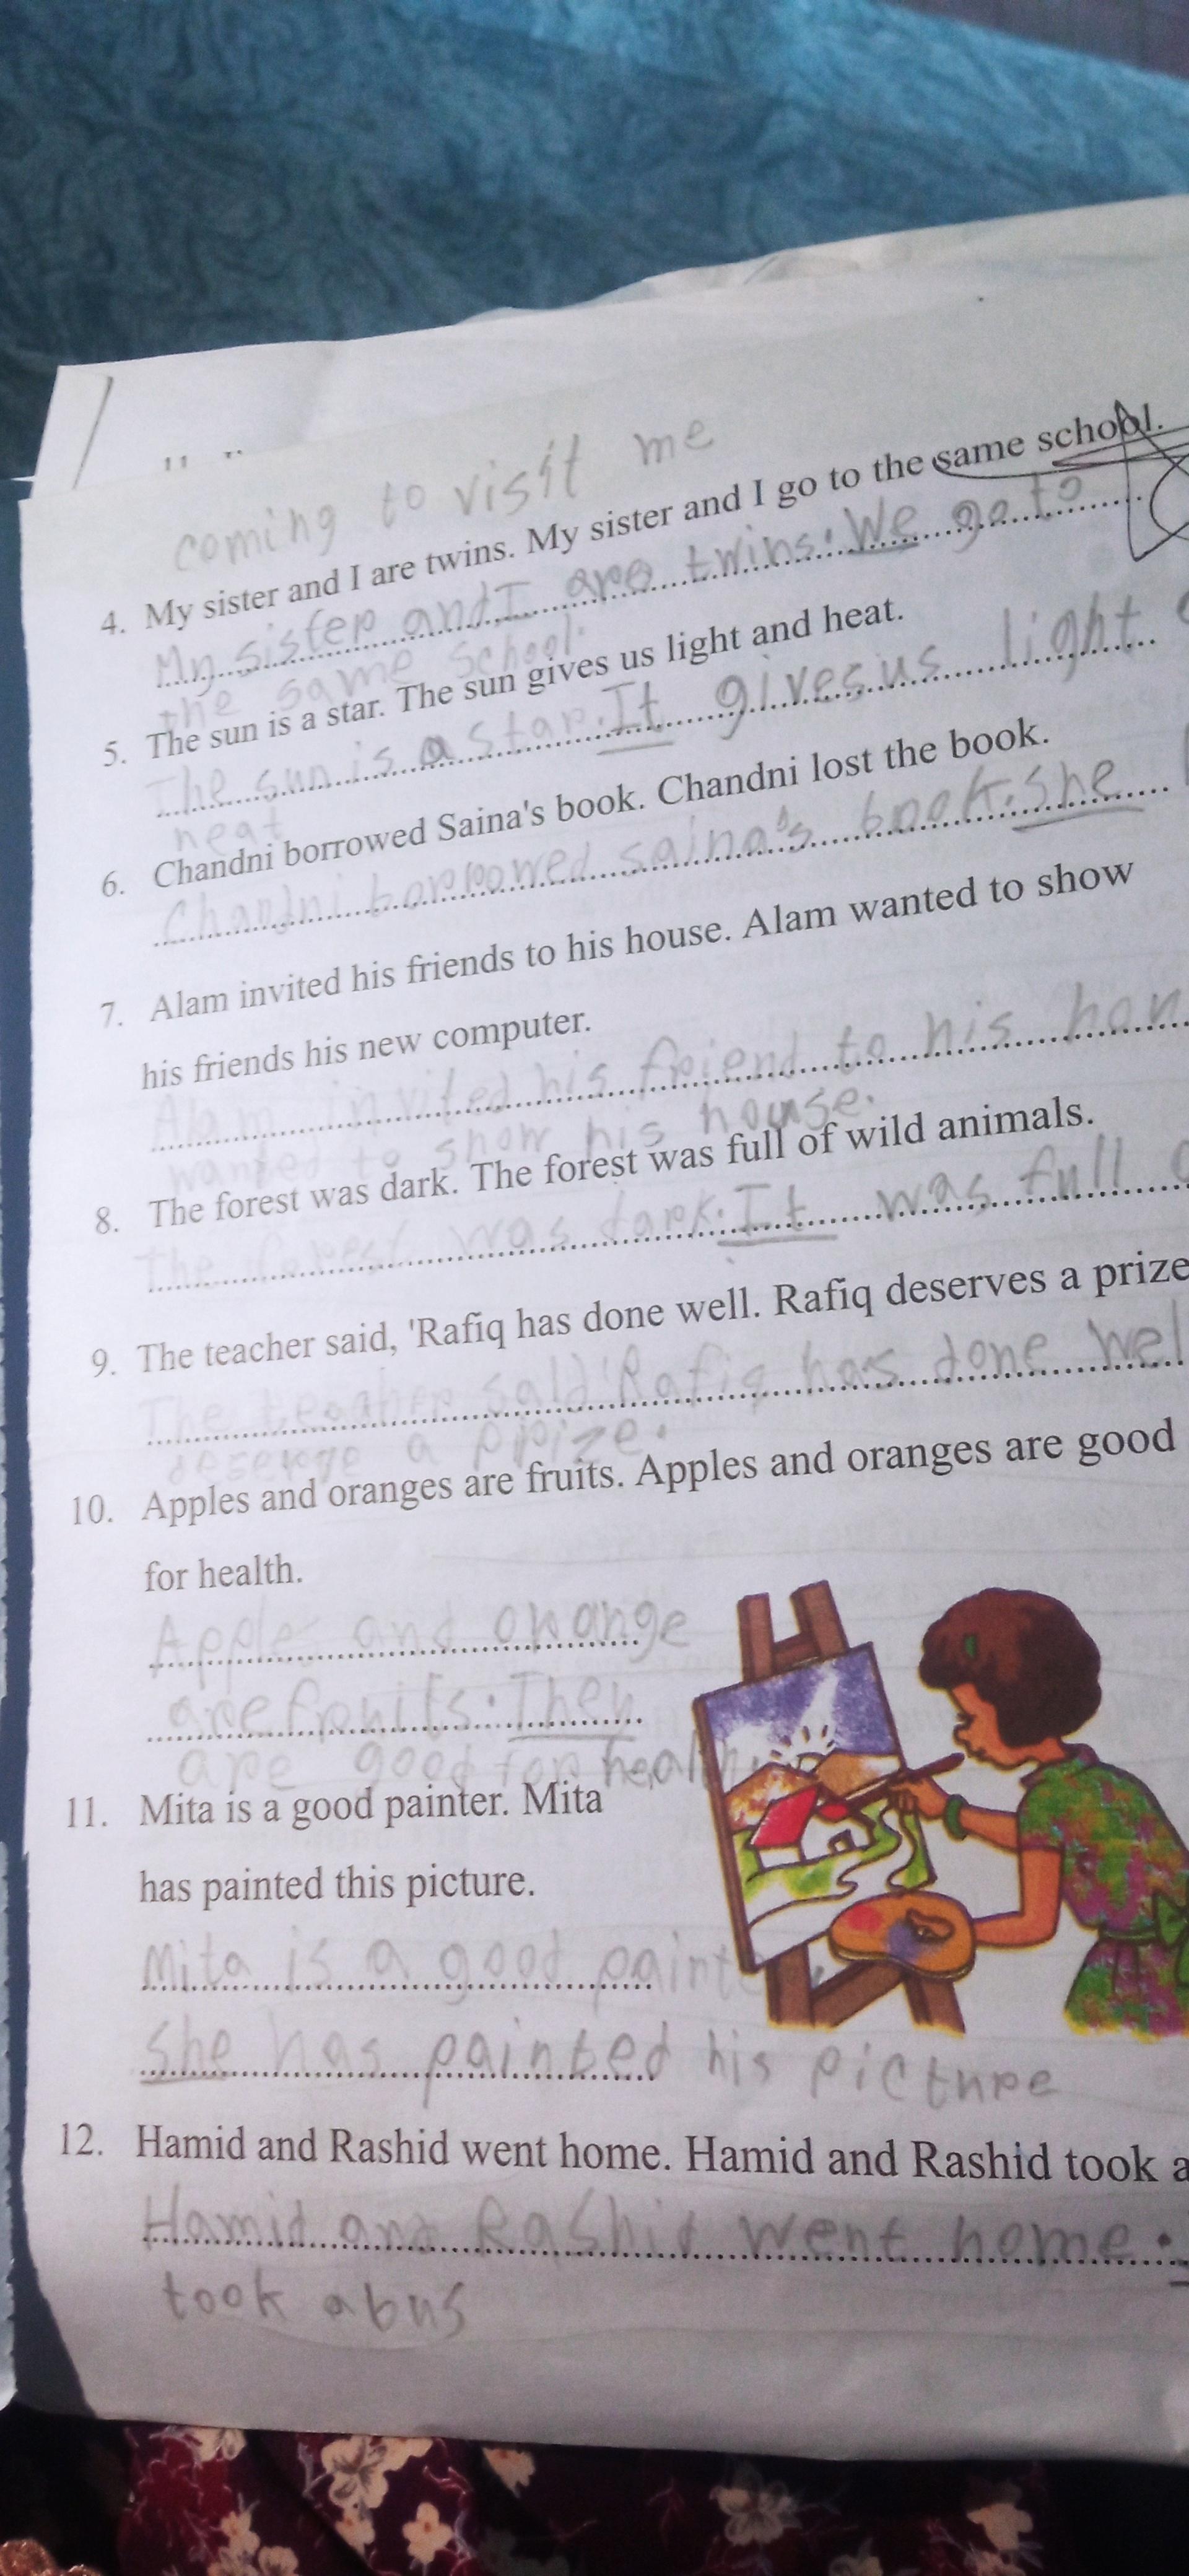 coming to visit me
4. My sister and I are twins. My sister and I go to the same school.
My sister and I are twins. We go to
the same school.
5. The sun is a star. The sun gives us light and heat.
The sun is a star. It gives us light
heat
6. Chandni borrowed Saina's book. Chandni lost the book.
Chandni borrowed saina's book. she
7. Alam invited his friends to his house. Alam wanted to show
his friends his new computer.
Alam invited his friend to his
wanted to show his house.
8. The forest was dark. The forest was full of wild animals.
The forest was dark. It was full
9. The teacher said, 'Rafiq has done well. Rafiq deserves a prize
The said 'Rafiq has done wel
a prize.
10. Apples and oranges are fruits. Apples and oranges are good
for health.
Apple and orange
are fruits. They
are good for health
11. Mita is a good painter. Mita
has painted this picture.
Mita is a good painte
She has painted his picture
12. Hamid and Rashid went home. Hamid and Rashid took a
Hamid and Rashid went home.
took a bus